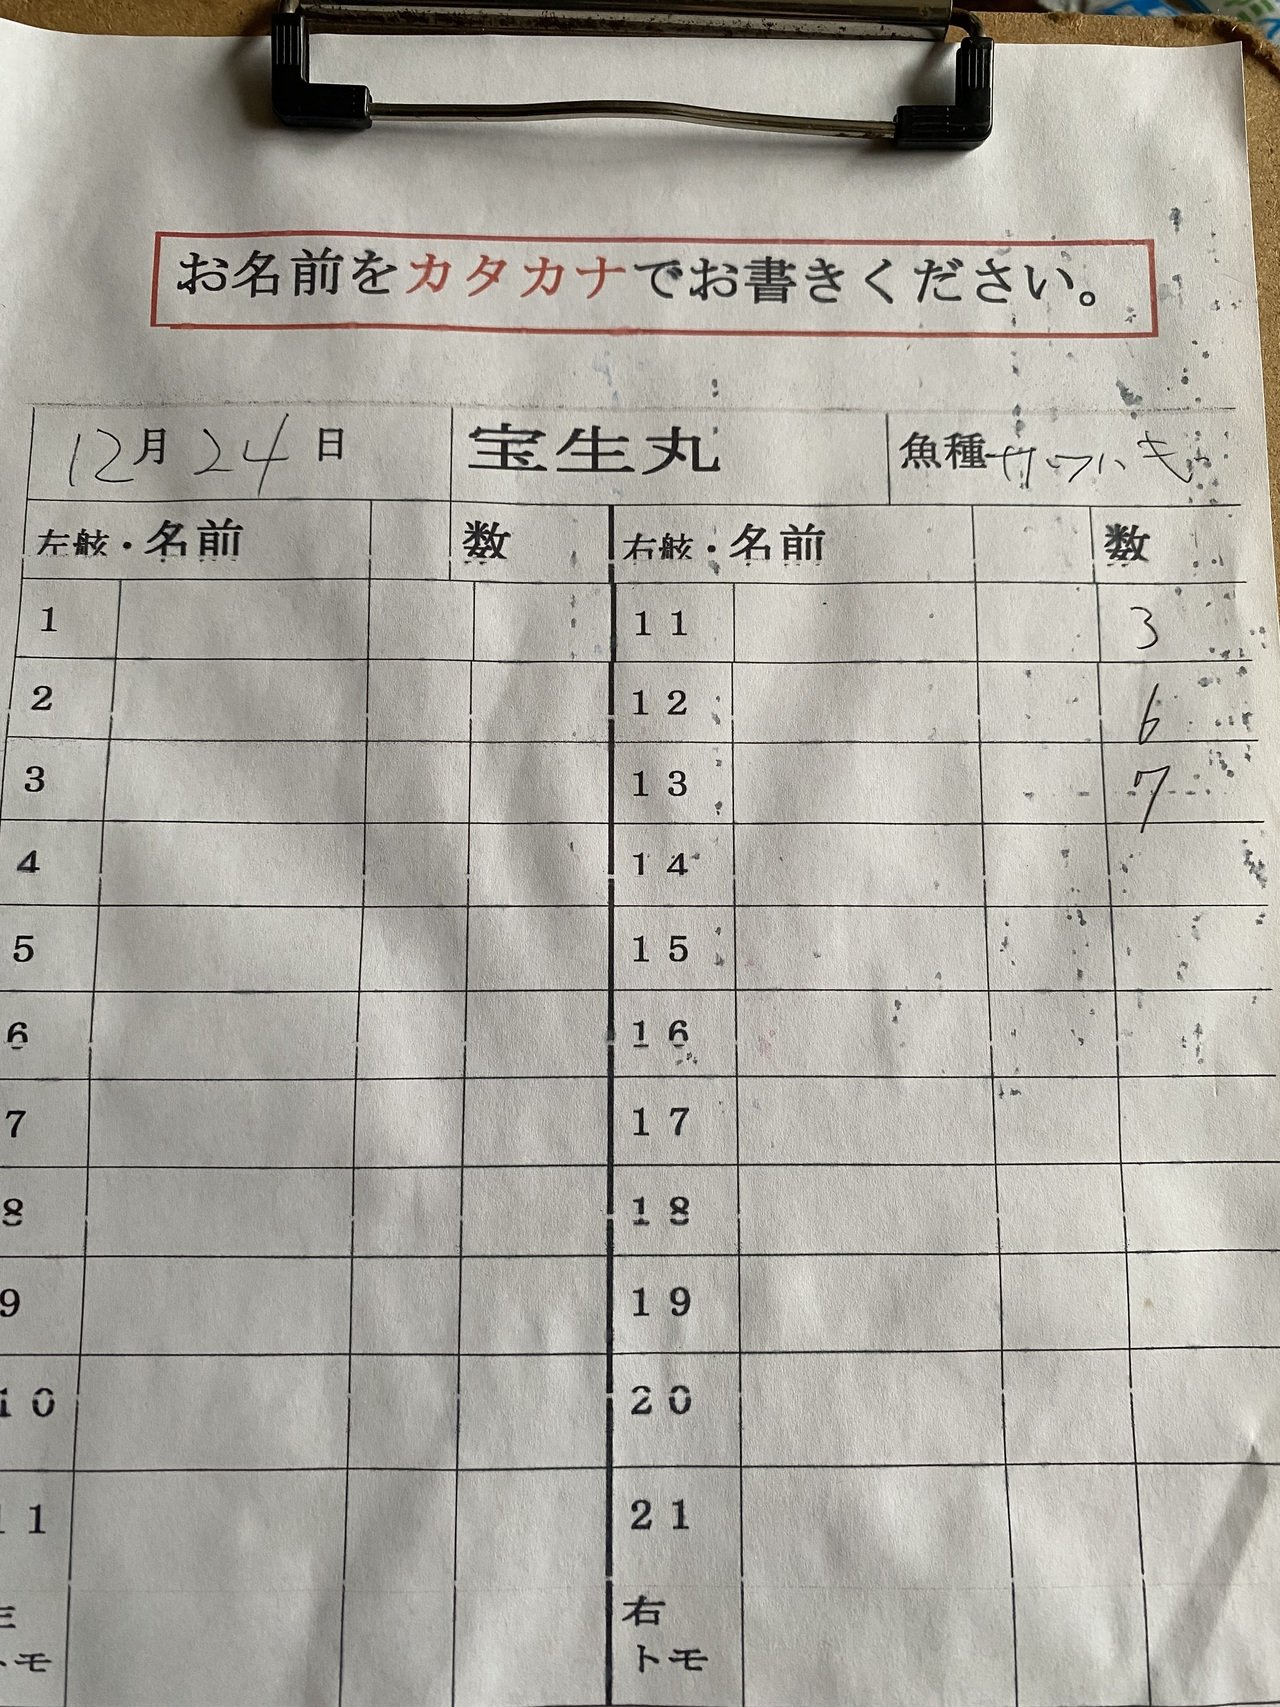 お名前をカタカナでお書きください。
12月24日 宝生丸 魚種 カワハキ
左舷・名前 数 右舷・名前 数
1 11 3
2 12 6
3 13 7
4 14
5 15
6 16
7 17
8 18
9 19
10 20
11 21
右
トモ トモ